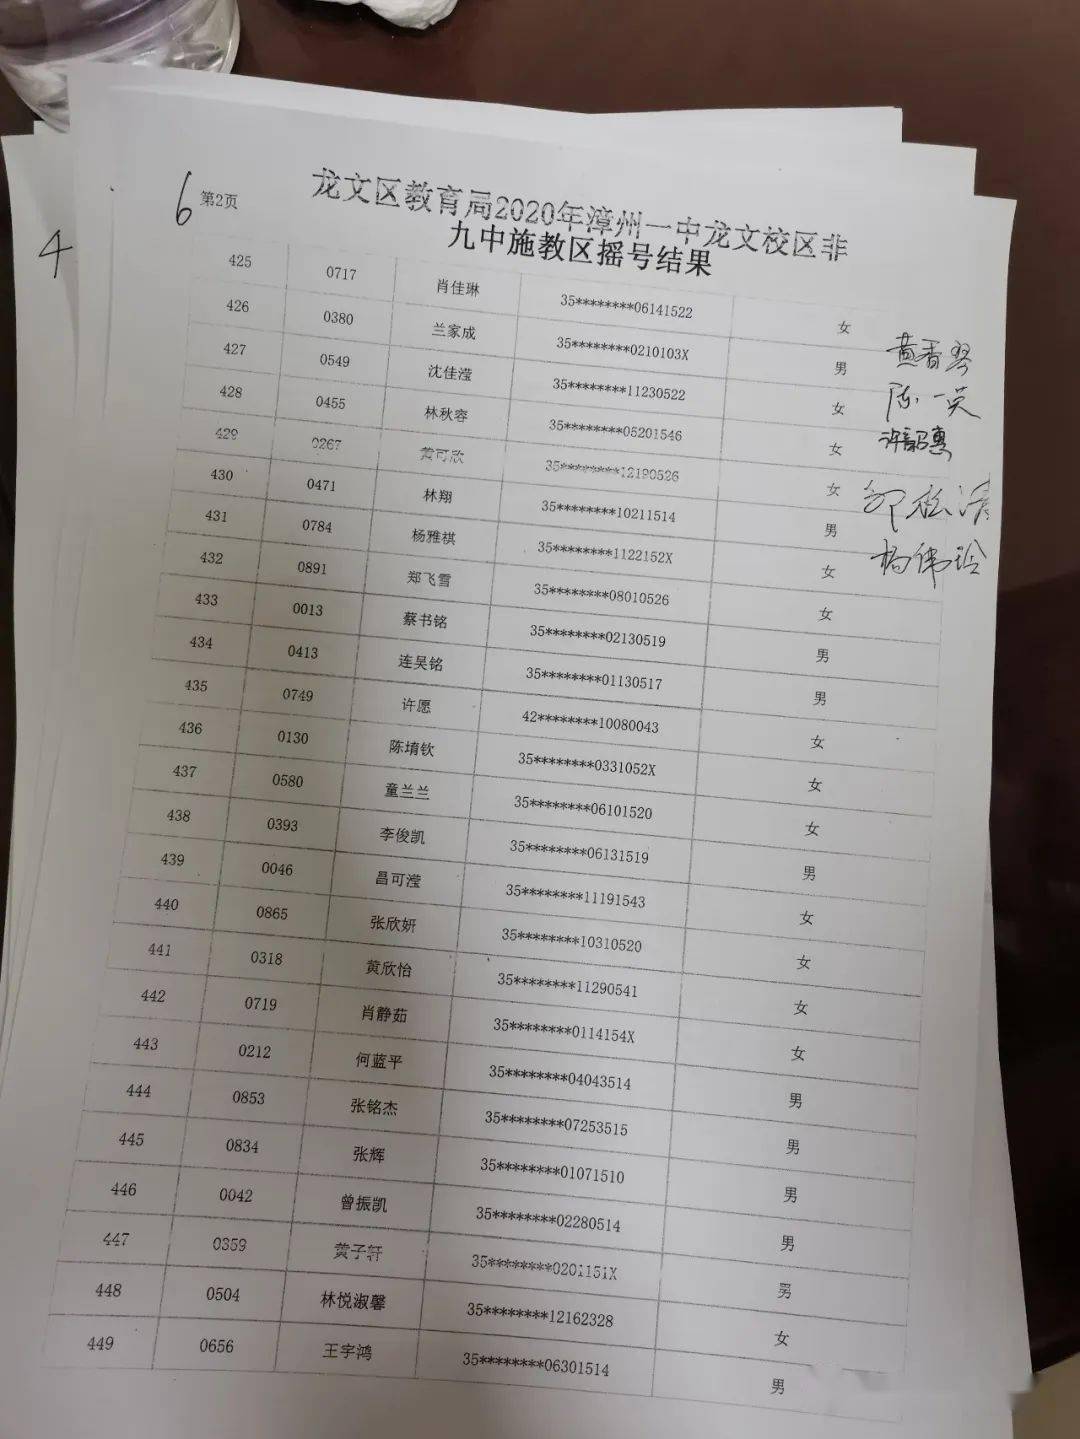 龙文区教育局2020年漳州一中龙文校区非
九中施教区摇号结果
6 第2页
4
425 0717 肖佳琳 35********06141522 女
426 0380 兰家成 35********0210103X 男
427 0549 沈佳滢 35********11230522 女
428 0455 林秋容 35********05201546 女
429 0267 黄可欣 35********12190526 女
430 0471 林翔 35********10211514 男
431 0784 杨雅祺 35********1122152X 女
432 0891 郑飞雪 35********08010526 女
433 0013 蔡书铭 35********02130519 男
434 0413 连昊铭 35********01130517 男
435 0749 许愿 42********10080043 女
436 0130 陈堉钦 35********0331052X 女
437 0580 童兰兰 35********06101520 女
438 0393 李俊凯 35********06131519 男
439 0046 昌可滢 35********11191543 女
440 0865 张欣妍 35********10310520 女
441 0318 黄欣怡 35********11290541 女
442 0719 肖静茹 35********0114154X 女
443 0212 何蓝平 35********04043514 男
444 0853 张铭杰 35********07253515 男
445 0834 张辉 35********01071510 男
446 0042 曾振凯 35********02280514 男
447 0359 黄子轩 35********0201151X 男
448 0504 林悦淑馨 35********12162328 女
449 0656 王宇鸿 35********06301514 男
黄香琴
陈一英
许韶惠
杨伟玲